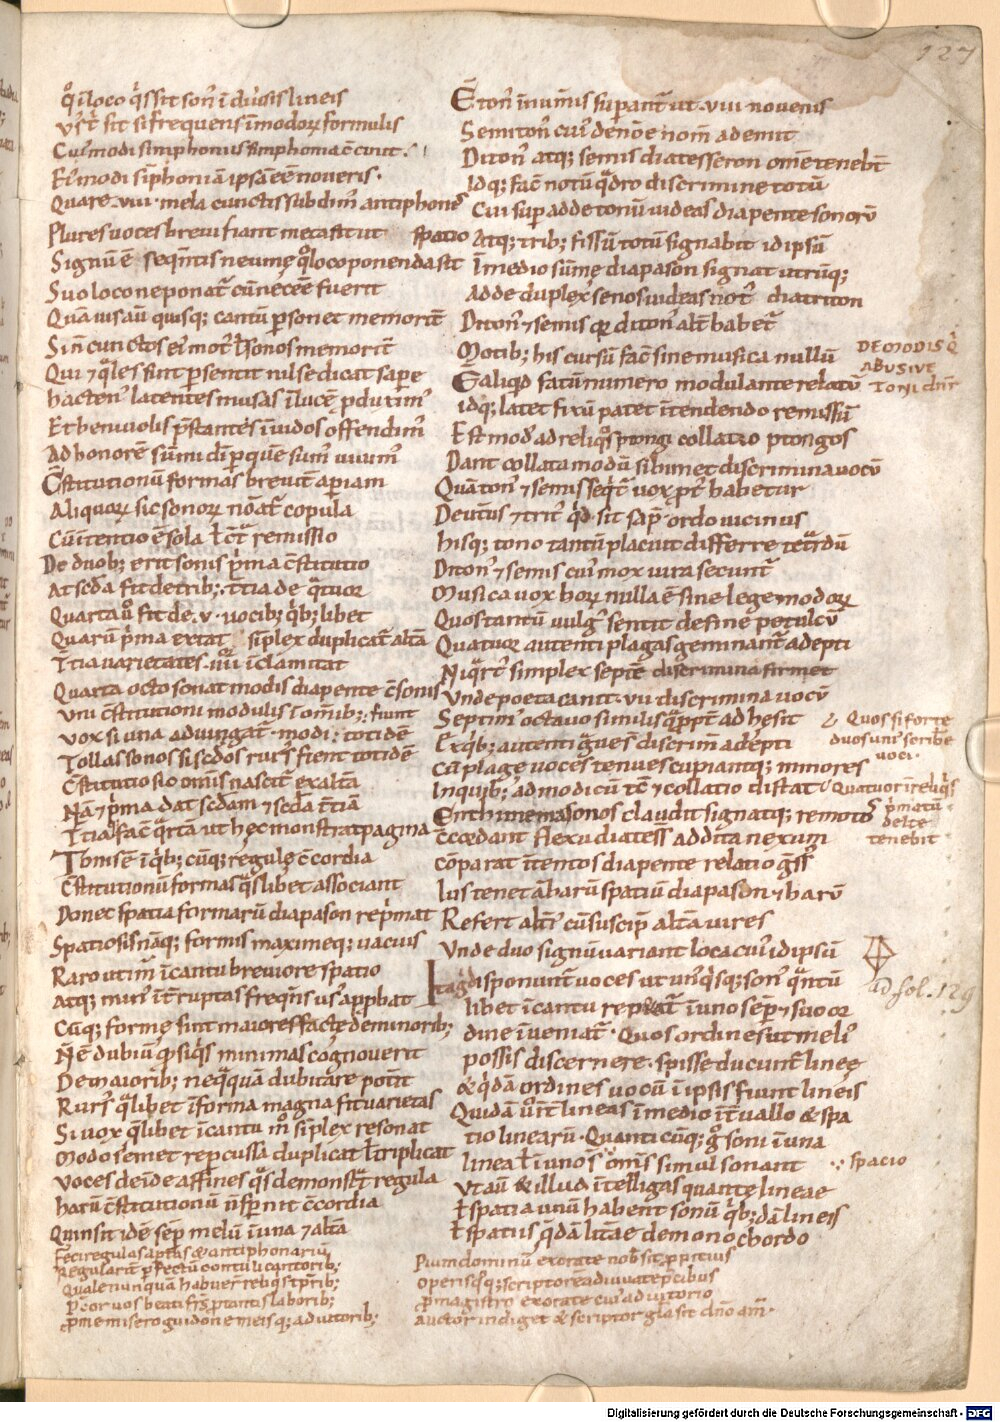 127
q̊ i loco q̇s sit son᷒ ī diu̇sis lineis
Vst̄ sit si frequens ī modoꝝ formulis
Cui᷒ modi simphonius simphonia c̄ciuit.
Ei᷒ modi siphoniā ipsā ēē noueris.
Quare .viii. mela cunctis subdim᷒ antiphones
Plures uoces breui fiant metas ut ut spatio
Signū ē seqn̄tis neumę q̊ loco ponenda sit
Suo loco ne ponat᷒ cū necēē fuerit
Quā uis aū quisq; cantū psonet memorit᷒
Si n̄ cunctos ei᷒ mot᷒ ł sonos memorit᷒
Qui ⁊ q̄les sint psentit nil se dicat sapere
hacten᷒ latentes musas ī lucē pduxim᷒
Et beniuolis p̄stantes īuidos offendim᷒
Ad honorē sūmi di p̄ quē sum᷒ uiuim᷒
C̄stitutionū formas breuit᷒ apiam
Aliquoꝝ sic sonoꝝ nōat᷒ copula
Cū itentio ē sola ł c̄t᷒ remissio
De duob; erit sonis p̄ma c̄stitutio
At scda fit de trib; t̄tia de q̄tuor
Quarta ů fit de .v. uocib; q̇b; libet
Quarū p̄ma extat siplex duplicat᷒ altā
T̄tia uarietates .iiii. īclamitat
Quarta octo sonat modis diapente c̄sonis
Uni c̄stitutioni modulis ī omīb; fiunt
vox si una adiungat᷒ modi totidē
Tollas sonos si scdos rurs᷒ fient totidē
C̄stitutio sic omīs nascit᷒ ex altā
Nā ⁊ p̄ma dat scdam ⁊ scda t̄tiā
T̄tia fac q̄rta ut hęc monstrat pagina
Tonis ē ī q̇b; cūq; regulę c̄cordia
C̄stitutionū formas q̄slibet associant
Donec spatia formarū diapason rep̄mat
Spatiosis nāq; formis maximeq; uacuis
Raro utim᷒ ī cantu breuiore spatio
atq; mun᷒ īt̄ruptas freqn̄s us᷒ approbat
Cūq; formę sint maiores factę de minorib;
N̄ ē dubiū q̊ siq̇s minimas cognouerit
De maiorib; neq̄quā dubitare potit
Rurs᷒ q̄libet ī forma magna fit uarietas
Si uox q̄libet ī cantu m̊ siplex resonat
modo semet repcussa duplicat᷒ ł triplicat᷒
voces deīde affines q̄s demonstrat regula
harū c̄stitutionū n̄ spernit c̄cordia
Quin sit idē sep̄ melū ī una ⁊ altā
Feci regulas aptas & antiphonariū
Regularit᷒ pfectū contuli cantorib;
Quale nunquā habuer̄ reliq̇s tp̄rib;
p̄cor uos beati fr̄s p tantis laborib;
p me misero guidone meisq; adiutorib;
E ton᷒ in unus supant᷒ ut .viii. nouenis
Semiton᷒ cui᷒ denōe nom᷒ ademit
Diton᷒ atq; semis diatesseron omē tenebt̄
Idq; fac̄ notū q̄dro discrimine totū
Cui sup adde tonū uideas diapente sonorū
Atq; trib; fissū totū signabit id ipsū
Ī medio sūmę diapason signat utrūq;
Adde duplex senos uideas not᷒ diatriton
Diton᷒ ⁊ semis q̊ diton᷒ alt̄ habet᷒
Motib; his cursū fac̄ sine musica nullū
E aliqd fatū numero modulante relatū
idq; latet fixū patet ītendendo remissū
Est mod᷒ ad reliq̊s ptongi collatio ptongos
Dant collata modū sibimet discrimina uocū
Quā ton᷒ ⁊ semis seqt᷒ uox pt᷒ habetur
Deut᷒us ⁊ trit᷒ q̊d sit sap̄ ordo uicinus
hisq; tono tantū placuit differre tetrardū
Diton᷒ ⁊ semis cui᷒ mox iura secunt᷒
Musica uox horꝝ nulla ē sine lege modoꝝ
Quos tantū uulg᷒ sentit de fine petulcū
Quatuor autenti plagas geminant᷒ adepti
Niq̇t᷒ simplex septē discrimina firmet
Vnde poeta canit .vii. discrimina uocū
Septim᷒ octauo similis q̊ppt᷒ adhesit
Ex q̇b; autenti ḡues discrim̄ adepti
Cū plagę uoces tenues cupiantq; minores
In quib; ad modicū tc̄ ⁊ collatio distat
Enthimema sonos claudit signatiq; remoto
C̄cedant flexu diatess addita nexum
cōparat ītentos diapente relatio g̊ss
Ius tenet ābarū spatiū diapason ⁊ harū
Refert alt̄i cū suscip̄ altā uires
Vnde duo signū uariant loca cui᷒ id ipsū
Itaq; disponunt᷒ uoces ut un᷒q̇sq; son᷒ q̄ntū
libet ī cantu repetat᷒ ī uno sep̄ ⁊ suo or
dine īueniat᷒. Quos ordines ut meli᷒
possis discernere. spisse ducunt᷒ lineę
& q̇dā ordines uocū ī ipsis fiunt lineis
Quidā ů īt᷒ lineas ī medio īt̄uallo & spa
tio linearū. Quanti cūq; g̊ soni ī una
linea ł ī uno s᷒ om̄s simul sonant
Vt aū & illud ītelligas quantę lineae
ł spatia unū habent sonū q̇b; dā lineis
ł spatiis q̇dā litt̄ae de monochordo
Pium dominū exorate nob̄ sit ppitius
operisq; scriptorē adiuuate p̄cibus
p magistro exorate cui᷒ adiutorio
Auctor indiget & scriptor gła sit dn̄o am̄.
DE MODIS Q̇
ABUSIVE
TONI dn̄r
Quos si forte
duos uni᷒ scribe
uoci.
Quatuor ī reliq̇s
p̄matū
delte
tenebit
ad fol. 129
spacio
Digitalisierung gefördert durch die Deutsche Forschungsgemeinschaft - DFG